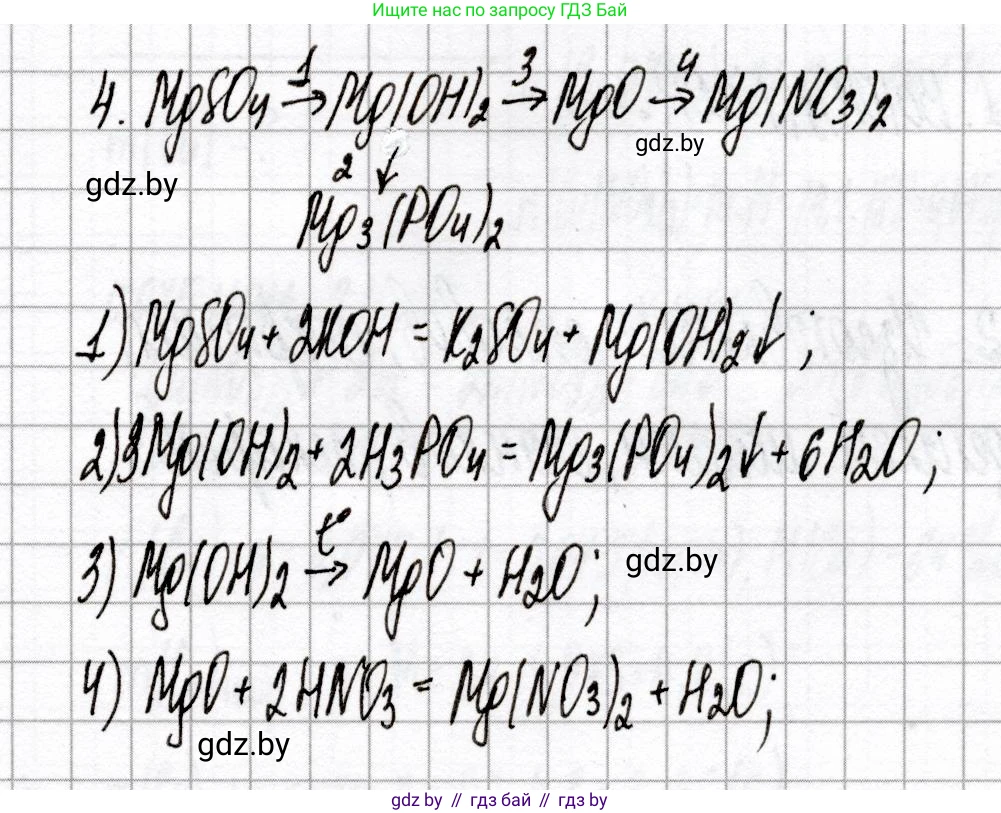 Ищите нас по запросу ГДЗ Бай
4. MgSO4 →1 Mg(OH)2 →3 MgO →4 Mg(NO3)2
gdz.by
gdz.by
2 ↓
Mg3(PO4)2
1) MgSO4 + 2KOH = K2SO4 + Mg(OH)2↓ ;
2) 3Mg(OH)2 + 2H3PO4 = Mg3(PO4)2↓ + 6H2O;
3) Mg(OH)2 →t° MgO + H2O;
gdz.by
4) MgO + 2HNO3 = Mg(NO3)2 + H2O;
gdz.by
gdz.by // гдз бай // гдз by